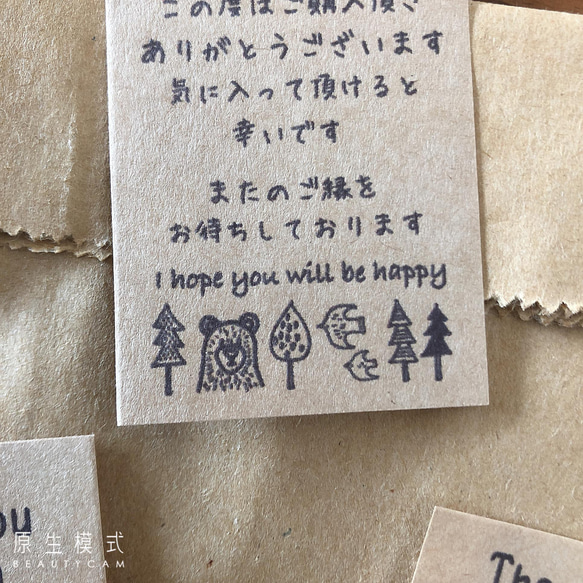 この度はご購入頂き
ありがとうございます
気に入って頂けると
幸いです
またのご縁を
お待ちしております
I hope you will be happy
ou
原生模式
BEAUTYCAM
Tha